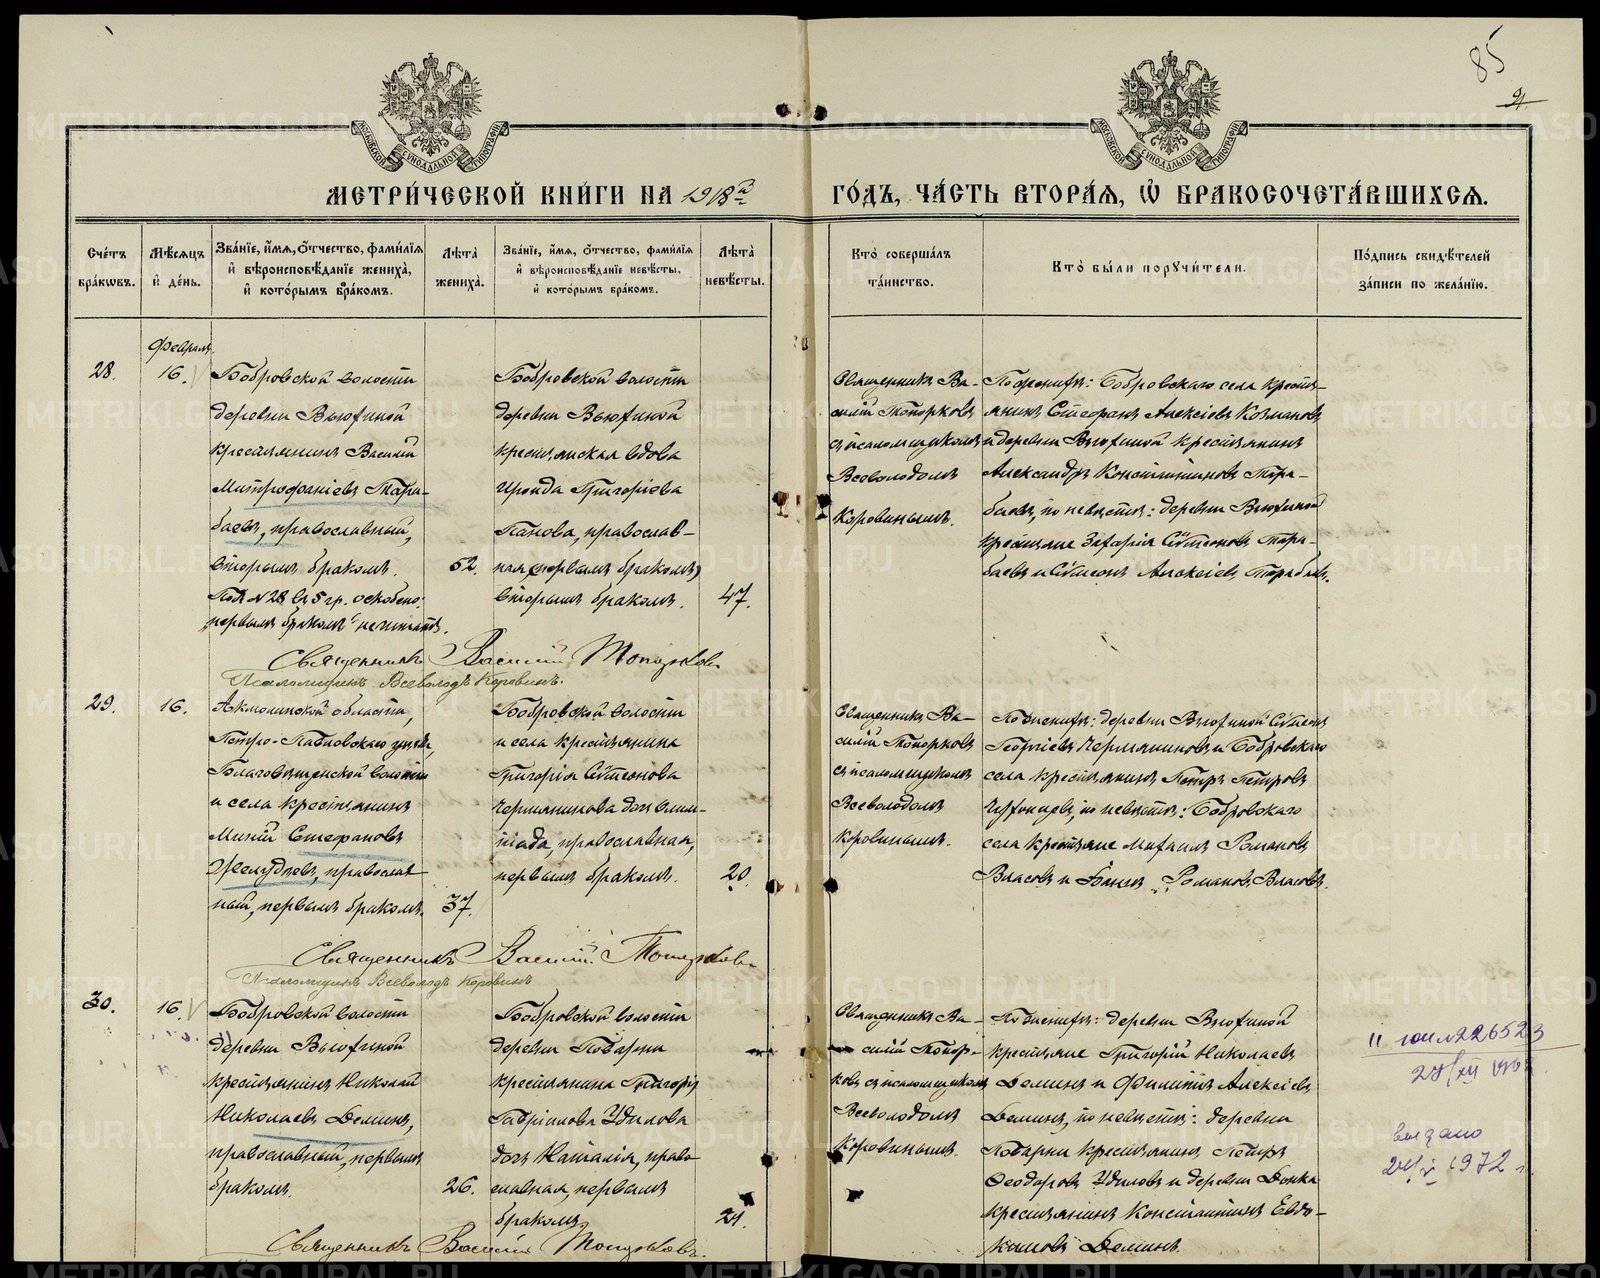 85
МОСКОВСКОЙ СѴНОДАЛЬНОЙ ТИПОГРАФІИ
МОСКОВСКОЙ СѴНОДАЛЬНОЙ ТИПОГРАФІИ
МЕТРИ́ЧЕСКОЙ КНИ́ГИ НА 1918й
ГО́ДЪ, ЧА́СТЬ ВТОРА́Ѧ, Ѽ БРАКОСОЧЕТА́ВШИХСѦ.
Сче́тъ бра́кѡвъ.
Мѣ́сяцъ и҆ де́нь.
Зва́нїе, и҆́мѧ, ѻ҆́тчество, фами́лїѧ и҆ вѣроисповѣ́данїе жениха̀, и҆ кото́рымъ бра́комъ.
Лѣ́та̀ жениха̀.
Зва́нїе, и҆́мѧ, ѻ҆́тчество, фами́лїѧ и҆ вѣроисповѣ́данїе невѣ́сты, и҆ кото́рымъ бра́комъ.
Лѣ́та̀ невѣ́сты.
Кто̀ соверша́лъ та́инство.
Кто̀ бы́ли порꙋчи́тели.
По́дпись свидѣ́телей за́писи по жела́нїю.
Февраль.
28.
16.
Бобровской волости
деревни Вьюхиной
крестьянинъ Василій
Митрофаніевъ Тара-
баевъ, православный,
вторымъ бракомъ.
52.
Под №28 въ 5 гр. оскоблено:
"первымъ бракомъ" не читать.
Бобровской волости
деревни Вьюхиной
крестьянская вдова
Ираида Григоріева
Панова, православ-
ная (первымъ бракомъ)
вторымъ бракомъ.
47.
Священникъ Ва-
силій Топорковъ
съ псаломщикомъ
Всеволодомъ
Коровинымъ.
По женихѣ: Бобровскаго села кресть-
янинъ Стефанъ Алексіевъ Козмановъ
и деревни Вьюхиной крестьянинъ
Александръ Константиновъ Тара-
баевъ, по невѣстѣ: деревни Вьюхиной
крестьяне Захарія Сѵмеоновъ Тара-
баевъ и Сѵмеонъ Алексіевъ Тарабаевъ.
Священникъ Василій Топорковъ
Псаломщикъ Всеволодъ Коровинъ.
29.
16.
Акмолинской области,
Петро-Павловскаго уѣзда,
Благовѣщенской волости
и села крестьянинъ
Миній Стефановъ
Желудковъ, православ-
ный, первымъ бракомъ.
37.
Бобровской волости
и села крестьянина
Григорія Сѵмеонова
Чермянинова дочь Олим-
піада, православная,
первымъ бракомъ.
20.
Священникъ Ва-
силій Топорковъ
съ псаломщикомъ
Всеволодомъ
Коровинымъ.
По женихѣ: деревни Вьюхиной Сѵмеонъ
Георгіевъ Чермяниновъ и Бобровскаго
села крестьянинъ Петръ Петровъ
по невѣстѣ: Бобровскаго
села крестьяне Михаилъ Романовъ
Власовъ и Романовъ Власовъ.
Священникъ Василій Топорковъ
Псаломщикъ Всеволодъ Коровинъ
30.
16.
Бобровской волости
деревни Вьюхиной
крестьянинъ Николай
Николаевъ Деминъ,
православный, первымъ
бракомъ.
26.
Бобровской волости
деревни Поварни
крестьянина Григорія
Гавріилова Удилова
дочь Наталія, право-
славная, первымъ
бракомъ.
21.
Священникъ Ва-
силій Топор-
ковъ съ псаломщикомъ
Всеволодомъ
Коровинымъ.
По женихѣ: деревни Вьюхиной
крестьяне Григорій Николаевъ
Деминъ и Филиппъ Алексіевъ
Деминъ, по невѣстѣ: деревни
Поварни крестьянинъ Петръ
Ѳеодоровъ Удиловъ и деревни
крестьянинъ Константинъ Евдо-
кимовъ Деминъ.
226523
выдано
1972 г.
Священникъ Василій Топорковъ.